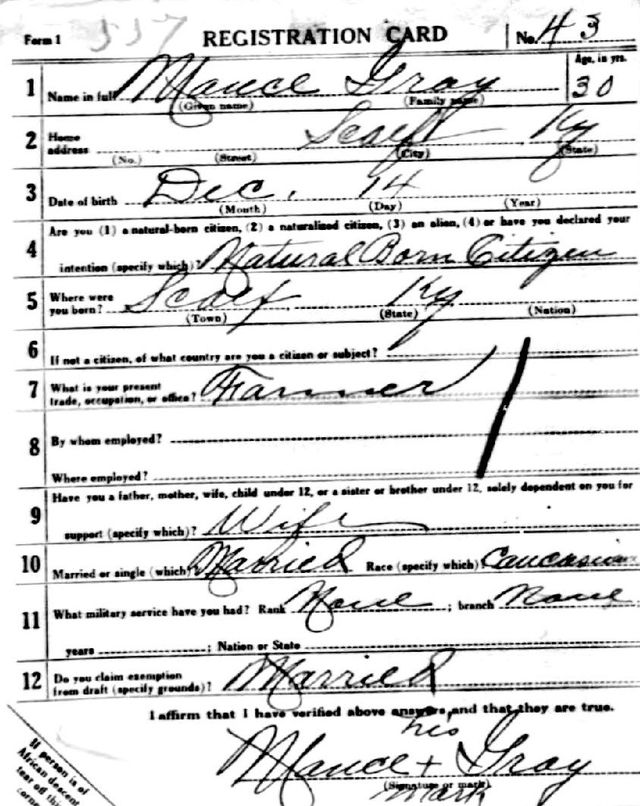 Form 1 557 REGISTRATION CARD No. 43
1 Name in full Mance Gray Age, in yrs. 30
(Given name) (Family name)
2 Home address Scalf Ky
(No.) (Street) (City) (State)
3 Date of birth Dec. 14
(Month) (Day) (Year)
Are you (1) a natural-born citizen, (2) a naturalized citizen, (3) an alien, (4) or have you declared your
4 intention (specify which)? Natural Born Citizen
5 Where were you born? Scalf Ky
(Town) (State) (Nation)
6 If not a citizen, of what country are you a citizen or subject?
7 What is your present trade, occupation, or office? Farmer
8 By whom employed?
Where employed?
Have you a father, mother, wife, child under 12, or a sister or brother under 12, solely dependent on you for
9 support (specify which)? Wife
10 Married or single (which)? Married Race (specify which)? Caucasian
11 What military service have you had? Rank None ; branch None
years ; Nation or State
12 Do you claim exemption from draft (specify grounds)? Married
I affirm that I have verified above answers and that they are true.
his
Mance + Gray
(Signature or mark)
mark
If person is of
African descent
tear off this
corner